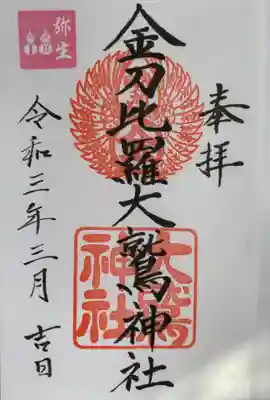 奉拝
金刀比羅大鷲神社
大鷲神社
弥生
令和三年三月吉日